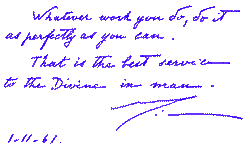 Whatever work you do, do it
as perfectly as you can.
That is the best service
to the Divine in man.
1-11-61.